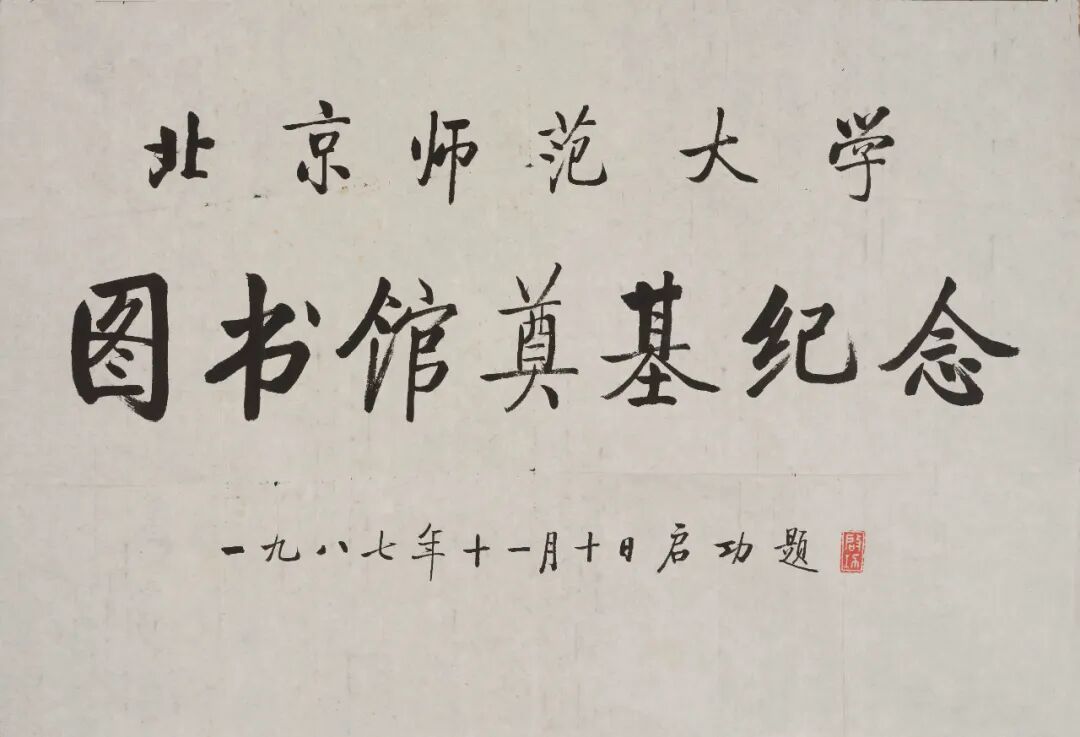 北京师范大学
图书馆奠基纪念
一九八七年十一月十日启功题
启功